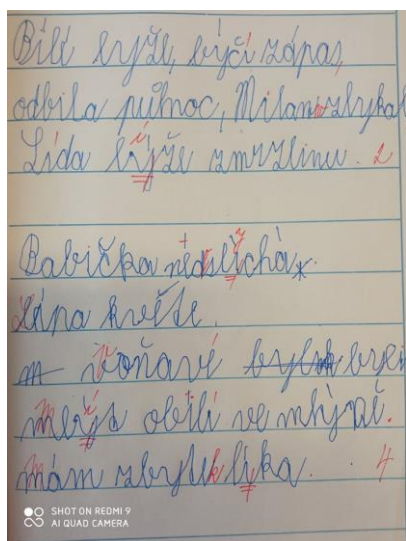 Bílí lyže, býčí zápas,
odbila půlnoc, Milan zbyka
Lída lýže zmrzlinu. 2
Babička nedslíchá.
Lípa květe.
voňavé
melýs obilí ve mlýně.
mám zbytek líka. 4
SHOT ON REDMI 9
AI QUAD CAMERA